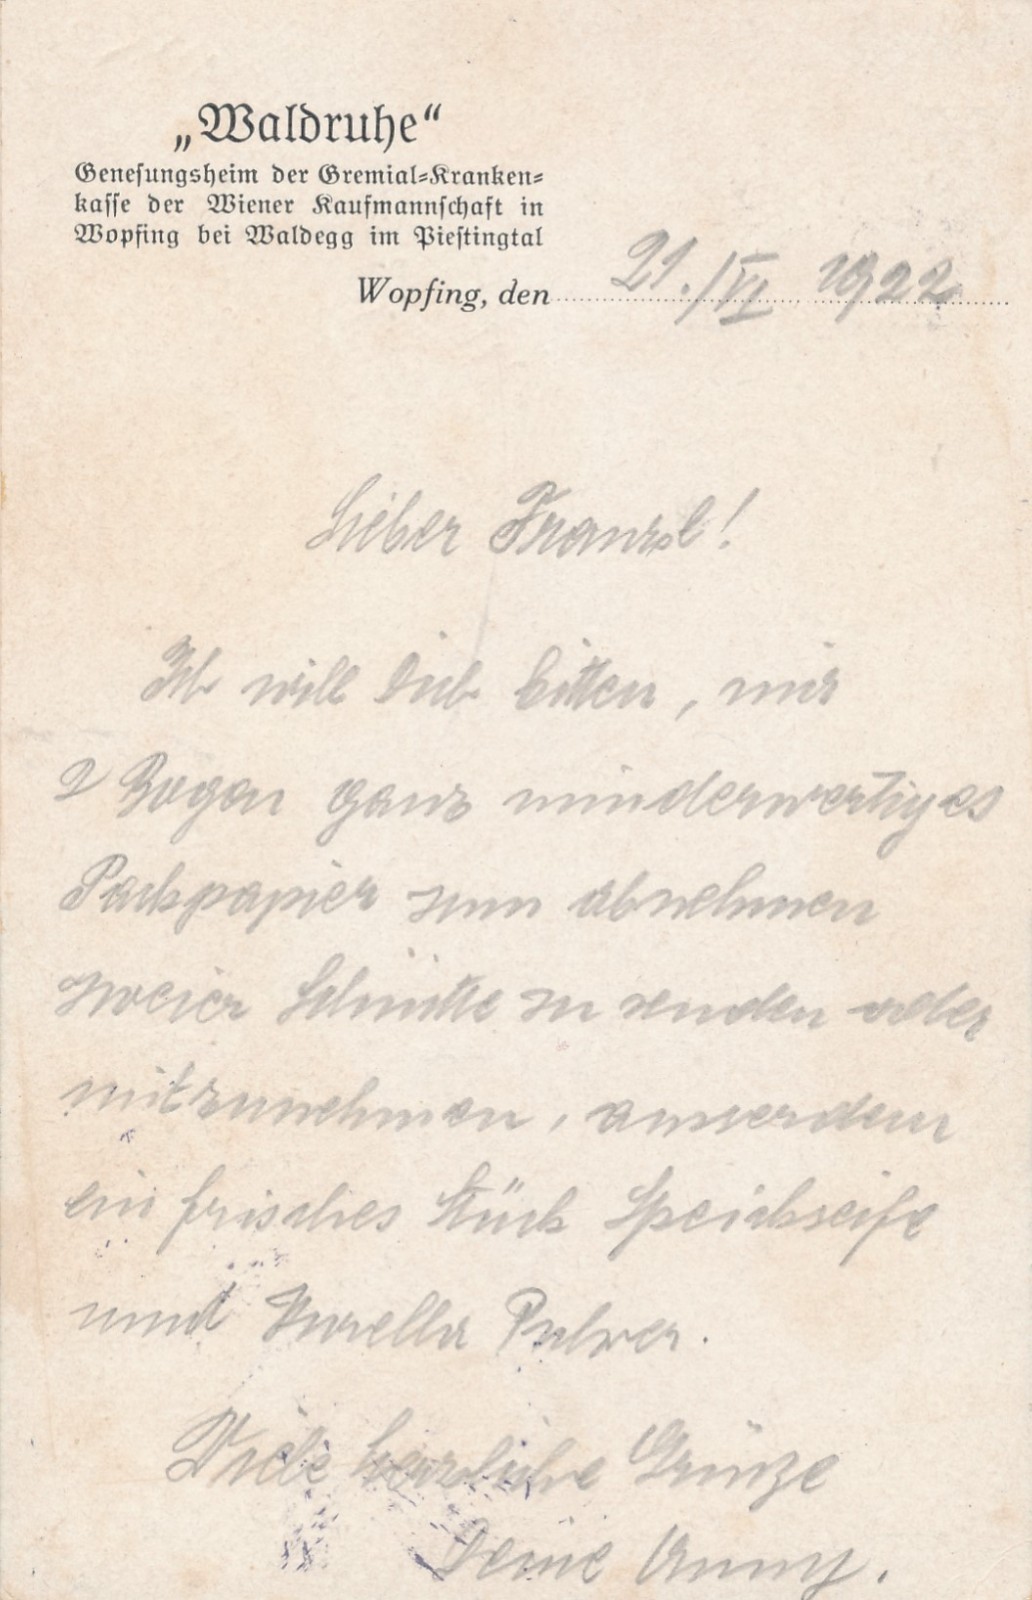 „Waldruhe“
Genesungsheim der Gremial-Kranken-
kasse der Wiener Kaufmannschaft in
Wopfing bei Waldegg im Piestingtal
Wopfing, den 21./VI 1922
Lieber Franzl!
Ich will Dich bitten, mir
2 Bogen ganz minderwertiges
Packpapier zum abnehmen
zweier Schnitte zu senden oder
mitzunehmen, ausserdem
ein frisches Stück Speickseife
und Pulver.
Viele herzliche Grüsze
Deine Anny.